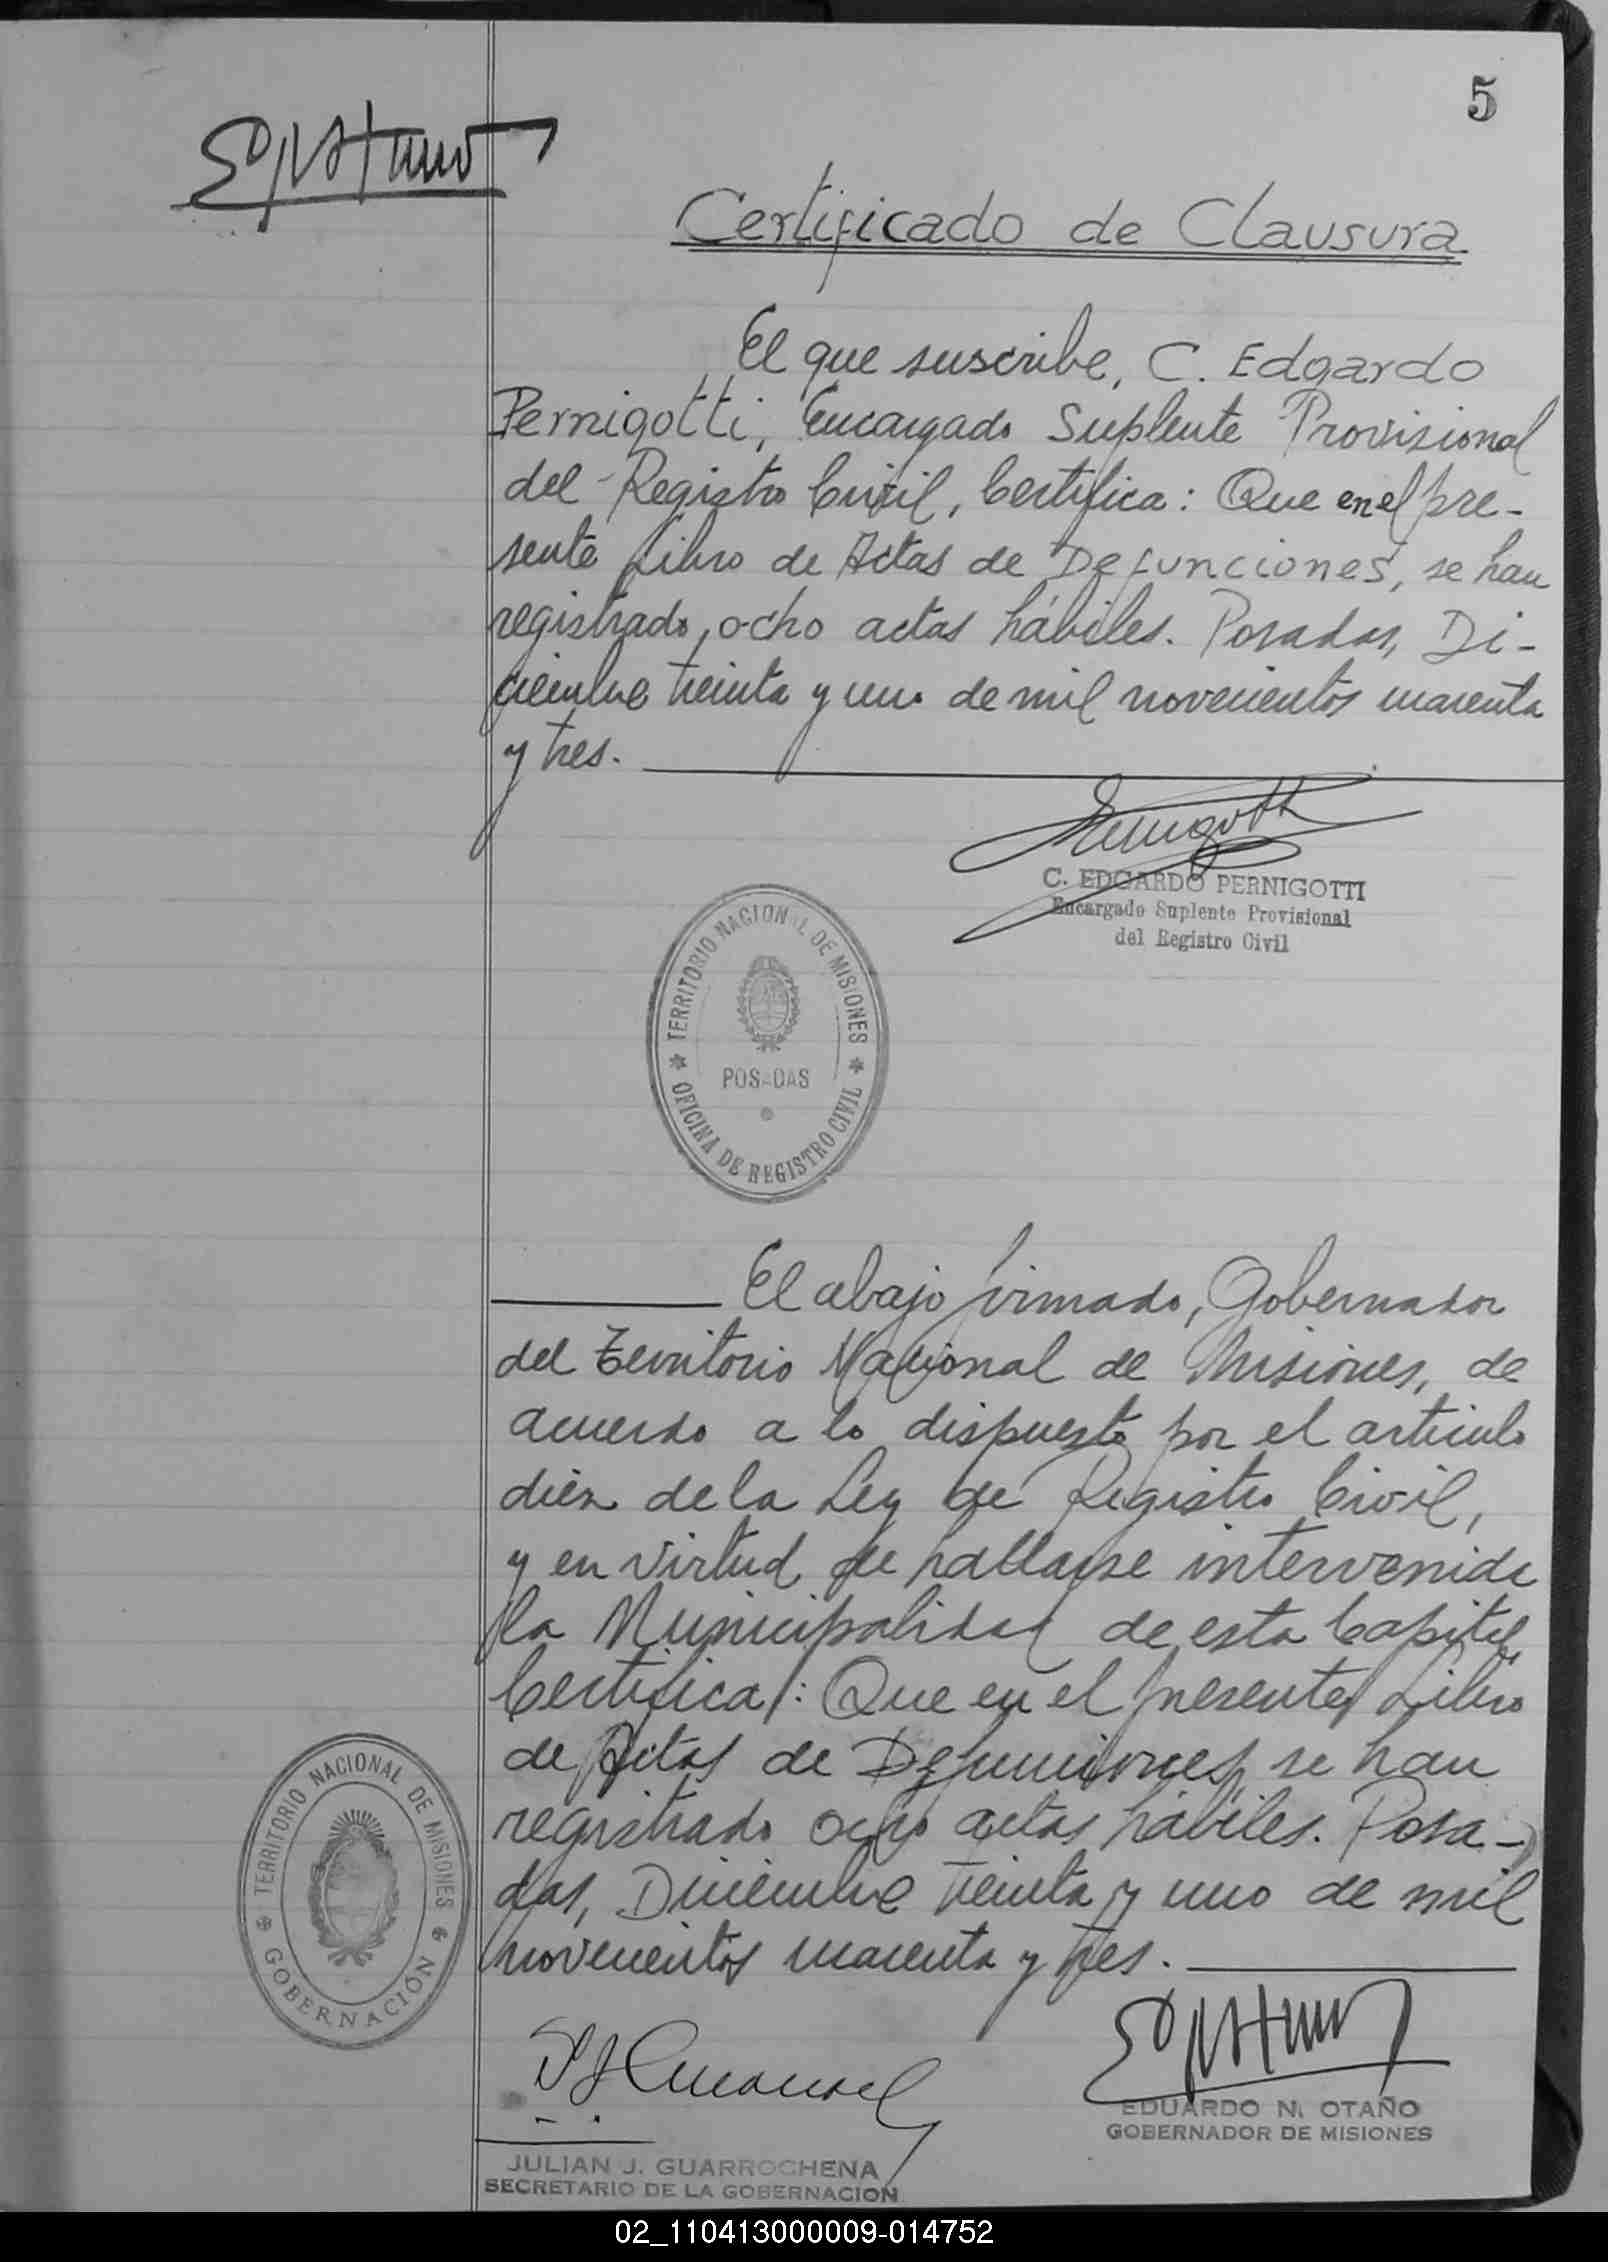 5
Certificado de Clausura
El que suscribe, C. Edgardo
Pernigotti, Encargado Suplente Provisional
del Registro Civil, Certifica: Que en el pre-
sente Libro de Actas de Defunciones, se han
registrado, ocho actas hábiles. Posadas, Di-
ciembre treinta y uno de mil novecientos cuarenta
y tres.
C. EDGARDO PERNIGOTTI
Encargado Suplente Provisional
del Registro Civil
TERRITORIO NACIONAL DE MISIONES
POSADAS
OFICINA DE REGISTRO CIVIL
El abajo firmado, Gobernador
del Territorio Nacional de Misiones, de
acuerdo a lo dispuesto por el artículo
diez de la Ley de Registro Civil,
y en virtud de hallarse intervenida
la Municipalidad de esta Capital,
Certifica: Que en el presente Libro
de Actas de Defunciones, se han
registrado ocho actas hábiles. Posa-
das, Diciembre treinta y uno de mil
novecientos cuarenta y tres.
TERRITORIO NACIONAL DE MISIONES
GOBERNACIÓN
EDUARDO N. OTAÑO
GOBERNADOR DE MISIONES
JULIAN J. GUARROCHENA
SECRETARIO DE LA GOBERNACION
02_110413000009-014752